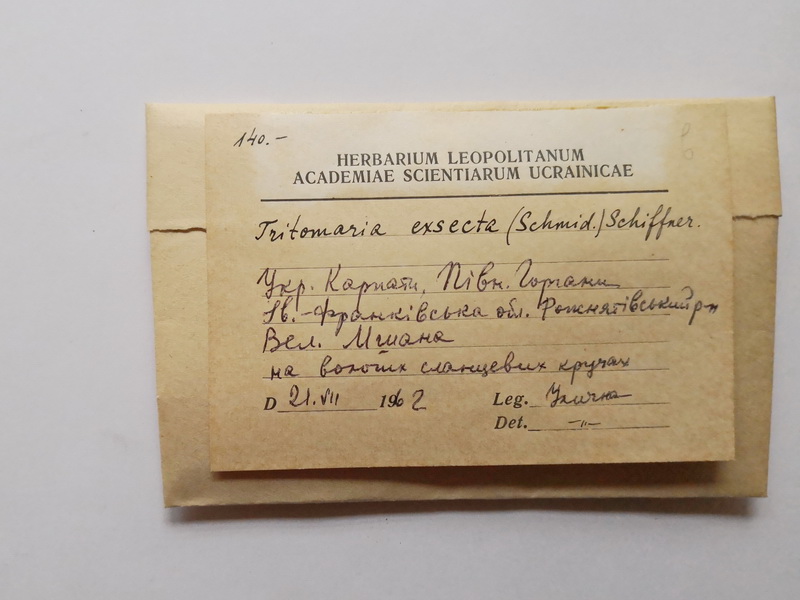 140.–
HERBARIUM LEOPOLITANUM
ACADEMIAE SCIENTIARUM UCRAINICAE
Tritomaria exsecta (Schmid.) Schiffner.
Укр. Карпати, Півн. Горгани
Ів.-Франківська обл. Рожнятівський р-н
Вел. Мшана
на вологих сланцевих кручах
D 21.VII 1962 Leg. Улична
Det. –"–